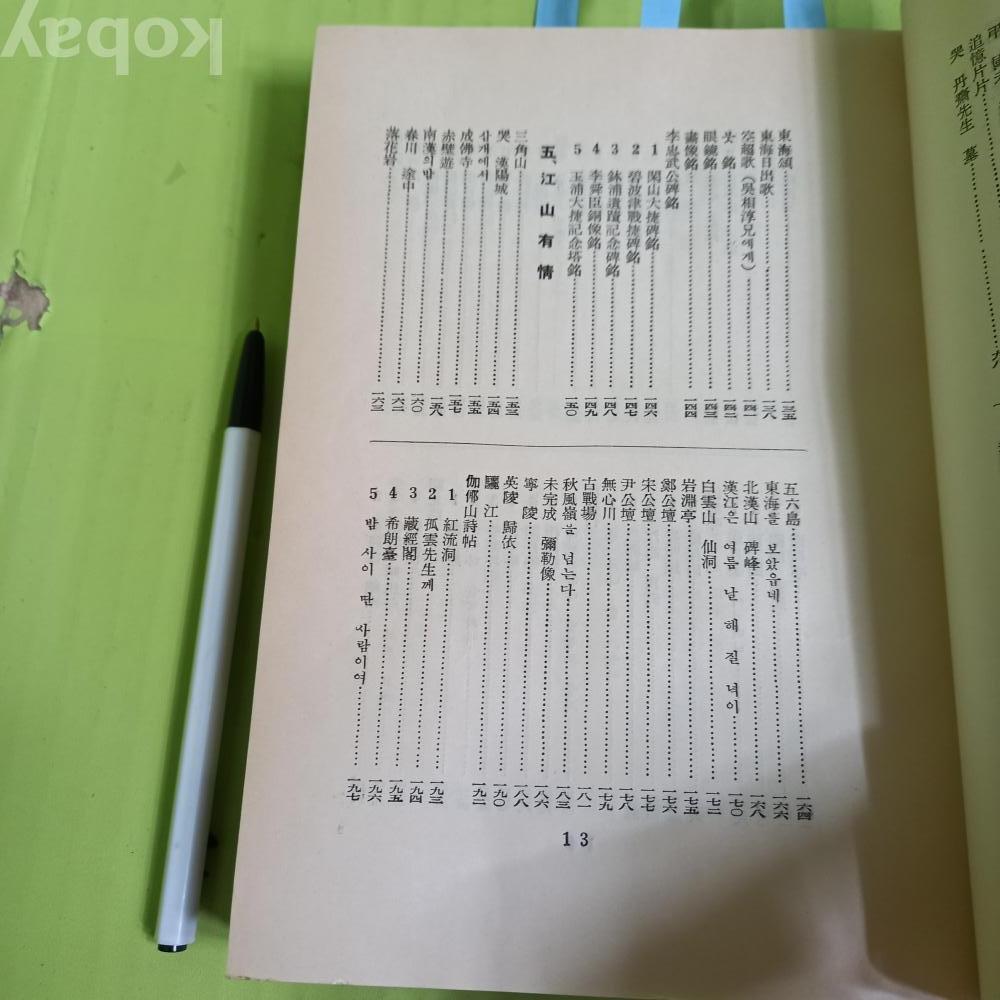 追憶片片
哭 丹齋先生 墓
東海頌 一三五
東海日出歌 一三八
空超歌(吳相淳兄에게) 一四一
붓 銘 一四二
眼鏡銘 一四三
畵像銘 一四四
李忠武公碑銘
1 閑山大捷碑銘 一四六
2 碧波津戰捷碑銘 一四七
3 鉢浦遺蹟記念碑銘 一四八
4 李舜臣銅像銘 一四九
5 玉浦大捷記念塔銘 一五〇
五、江山有情
三角山 一五三
哭 漢陽城 一五四
삼개에서 一五五
成佛寺 一五七
赤壁遊 一五八
南漢의밤 一六〇
春川 途中 一六二
落花岩 一六三
五六島 一六四
東海를 보았읍네 一六六
北漢山 碑峰 一六八
漢江은 여름 날 해 질 녘이 一七〇
白雲山 仙洞 一七二
岩淵亭 一七五
鄭公壇 一七六
宋公壇 一七七
尹公壇 一七八
無心川 一七九
古戰場 一八一
秋風嶺을 넘는다 一八三
未完成 彌勒像 一八六
寧 陵 一八八
英陵 歸依 一九〇
驪 江 一九二
伽倻山詩帖
1 紅流洞 一九三
2 孤雲先生께 一九四
3 藏經閣 一九五
4 希朗臺 一九六
5 밤 사이 딴 사람이여 一九七
13
kobay